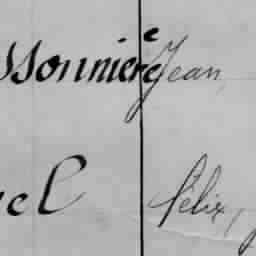 ssonnière Jean,
el Félix,